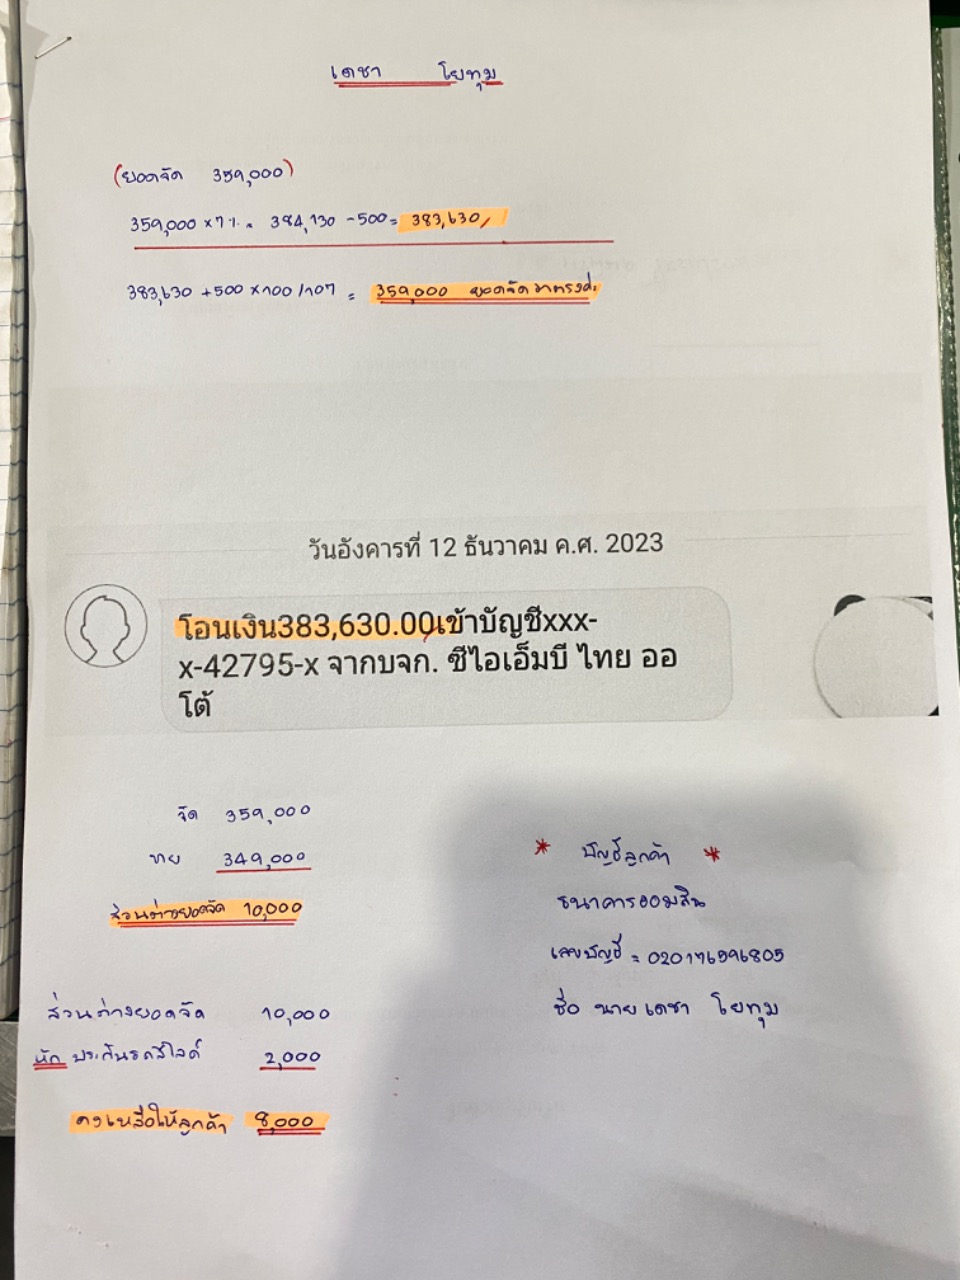 เดชา โยทุม
(ยอดจัด 359,000)
359,000 x 7% = 384,130 - 500 = 383,630/
383,630 + 500 x 100 / 107 = 359,000 ยอดจัดมาตรงค่ะ
วันอังคารที่ 12 ธันวาคม ค.ศ. 2023
โอนเงิน383,630.00เข้าบัญชีxxx-
x-42795-x จากบจก. ซีไอเอ็มบี ไทย ออ
โต้
จัด 359,000
ขาย 349,000
ส่วนต่างยอดจัด 10,000
* บัญชีลูกค้า *
ธนาคารออมสิน
เลขบัญชี = 020176596805
ชื่อ นาย เดชา โยทุม
ส่วนต่างยอดจัด 10,000
หัก ประกันรถสไลด์ 2,000
คงเหลือให้ลูกค้า 8,000